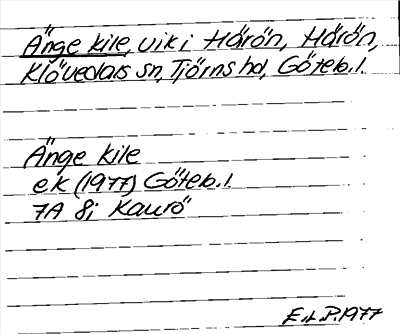 Änge kile, vik i Härön, Härön,
Klövedals sn, Tjörns hd, Göteb. l.
Änge kile
ek (1977) Göteb. l.
7A 8i Kaurö
E. P. 1977